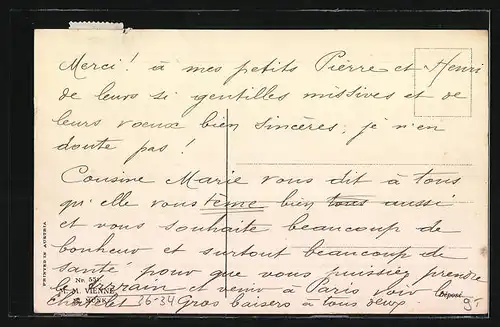 Merci! à mes petits Pierre et Henri
de leurs si gentilles missives et de
leurs voeux bien sincères; je n'en
doute pas!
Cousine Marie vous dit à tous
qu'elle vous aime bien tous aussi
et vous souhaite beaucoup de
bonheur et surtout beaucoup de
santé pour que vous puissiez prendre
le train et venir à Paris voir le
Gros baisers à tous deux
36-34
9.-
PRINTED IN AUSTRIA
Nr. 55
M. M. VIENNE
M. MUNK
Déposé.